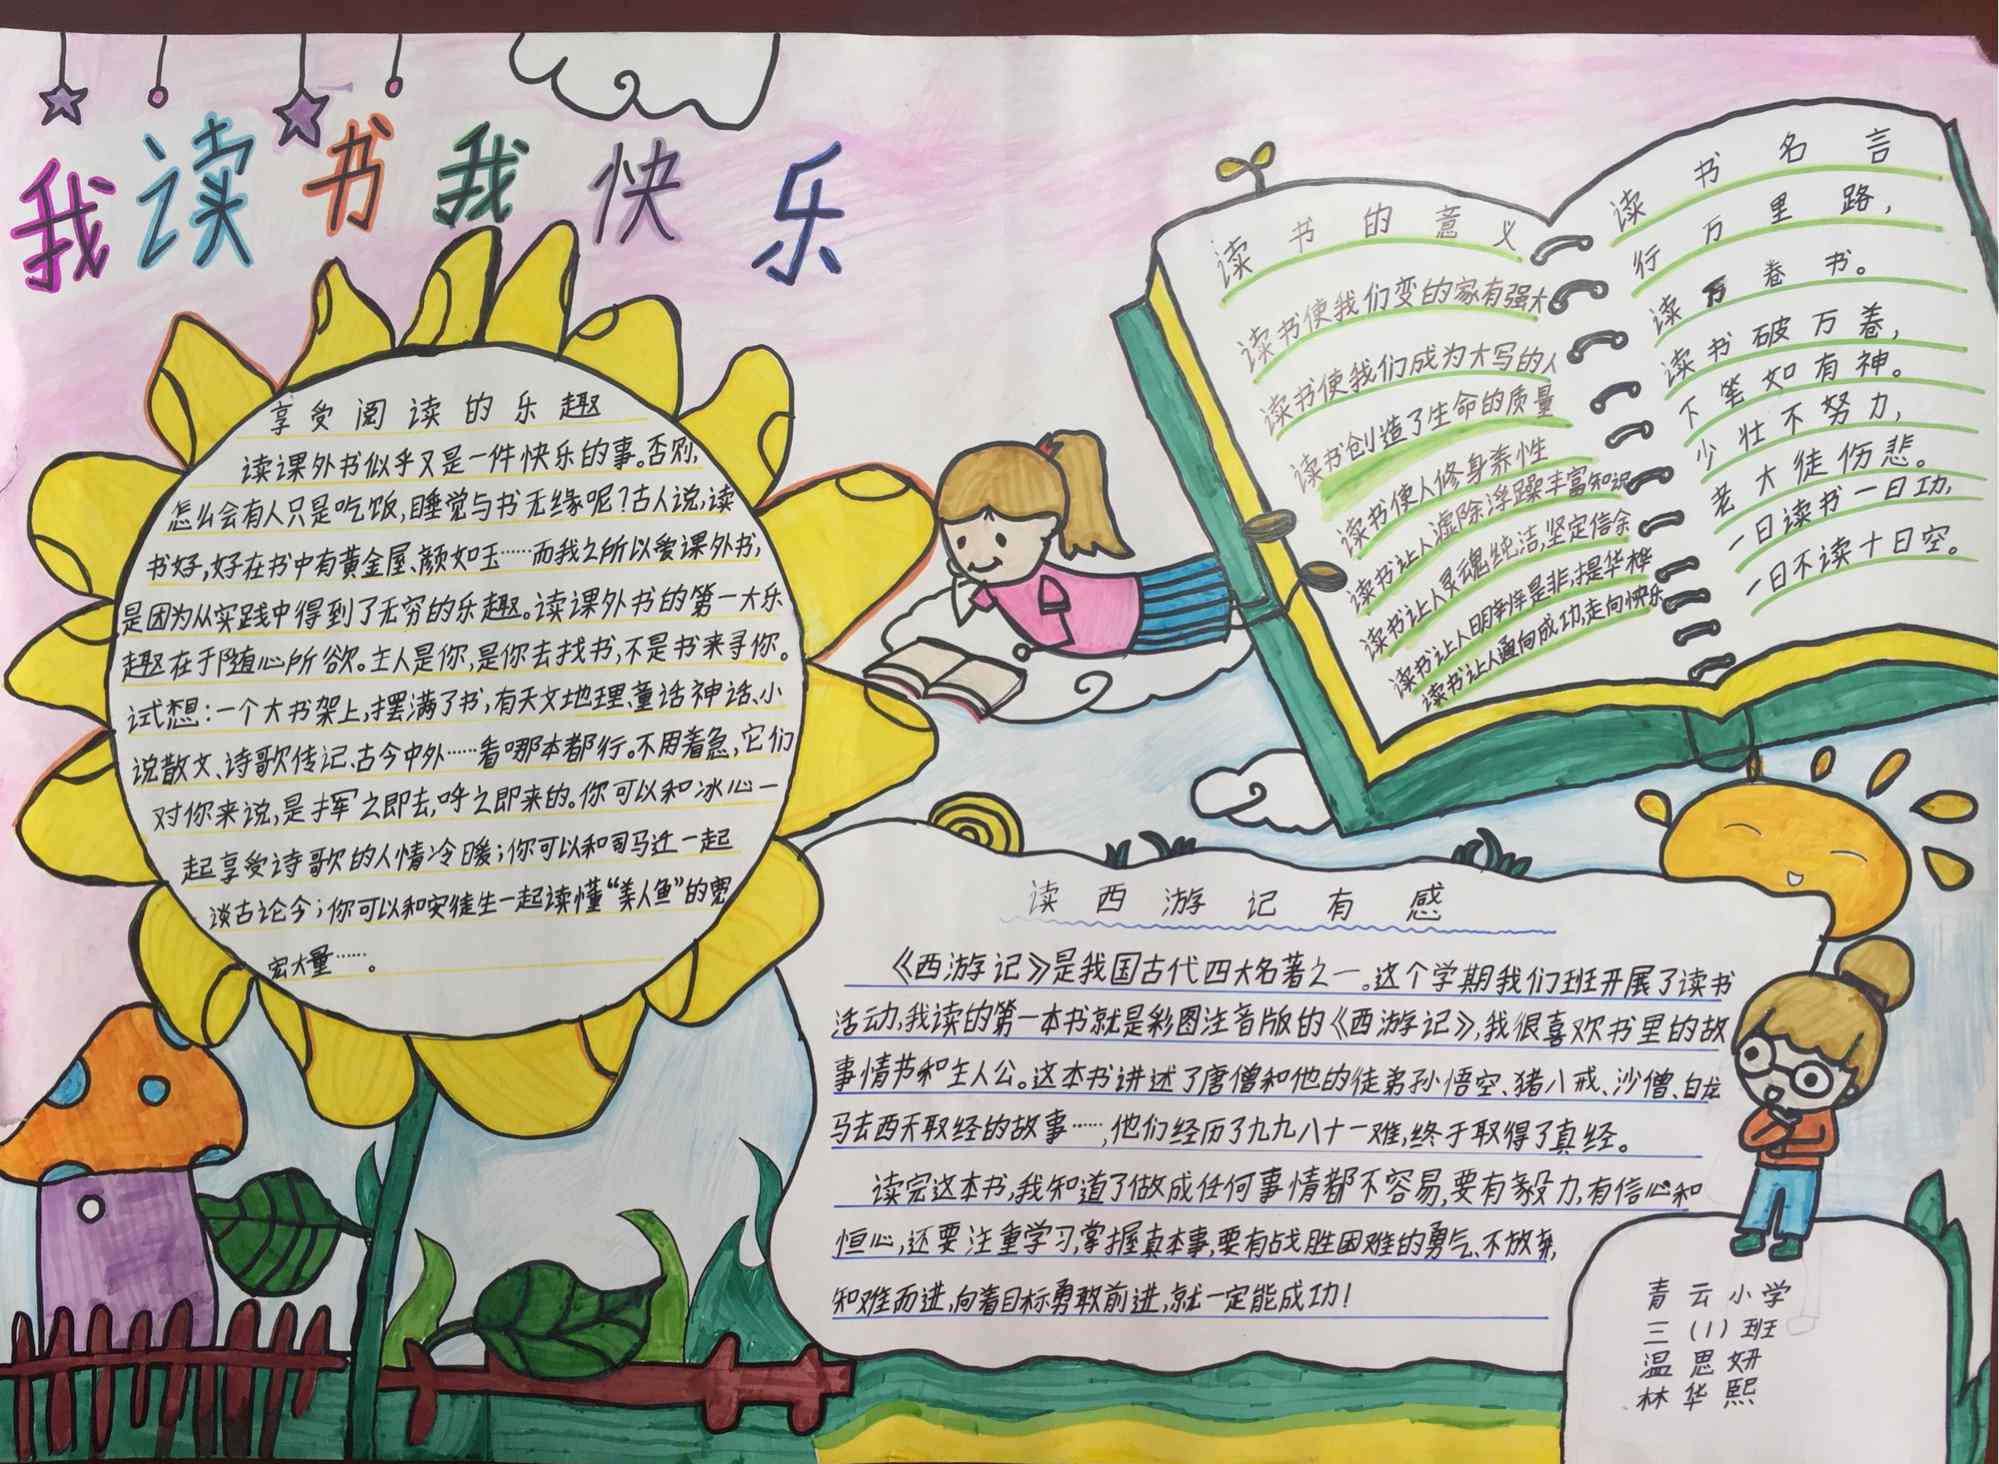 我读书我快乐
享受阅读的乐趣
读课外书似乎又是一件快乐的事。否则,
怎么会有人只是吃饭,睡觉与书无缘呢?古人说,读
书好,好在书中有黄金屋、颜如玉……而我之所以爱课外书,
是因为从实践中得到了无穷的乐趣。读课外书的第一大乐
趣在于随心所欲。主人是你,是你去找书,不是书来寻你。
试想:一个大书架上,摆满了书,有天文地理、童话神话、小
说散文、诗歌传记、古今中外……看哪本都行。不用着急,它们
对你来说,是挥之即去,呼之即来的。你可以和冰心一
起享受诗歌的人情冷暖;你可以和司马迁一起
谈古论今;你可以和安徒生一起读懂“美人鱼”的宽
宏大量……。
读书的意义
读书使我们变的家有强大
读书使我们成为大写的人
读书创造了生命的质量
读书使人修身养性
读书让人虚除浮躁丰富知识
读书让人灵魂纯洁,坚定信余
读书让人明辨是非,提华
读书让人通向成功,走向快乐
读书名言
行万里路,
读万卷书。
读书破万卷,
下笔如有神。
少壮不努力,
老大徒伤悲。
一日读书一日功,
一日不读十日空。
读西游记有感
《西游记》是我国古代四大名著之一。这个学期我们班开展了读书
活动,我读的第一本书就是彩图注音版的《西游记》,我很喜欢书里的故
事情节和主人公。这本书讲述了唐僧和他的徒弟孙悟空、猪八戒、沙僧、白龙
马去西天取经的故事……,他们经历了九九八十一难,终于取得了真经。
读完这本书,我知道了做成任何事情都不容易,要有毅力,有信心和
恒心,还要注重学习,掌握真本事,要有战胜困难的勇气、不放弃,
知难而进,向着目标勇敢前进,就一定能成功!
青云小学
三(1)班
温思妍
林华熙